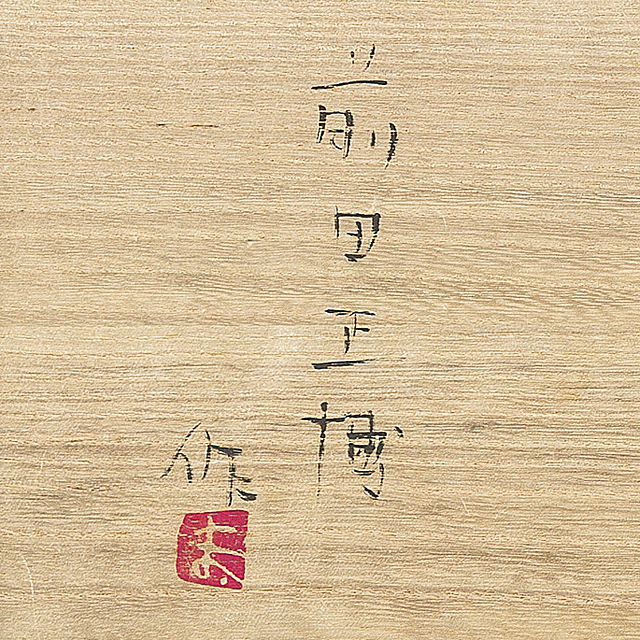 前田正博
作